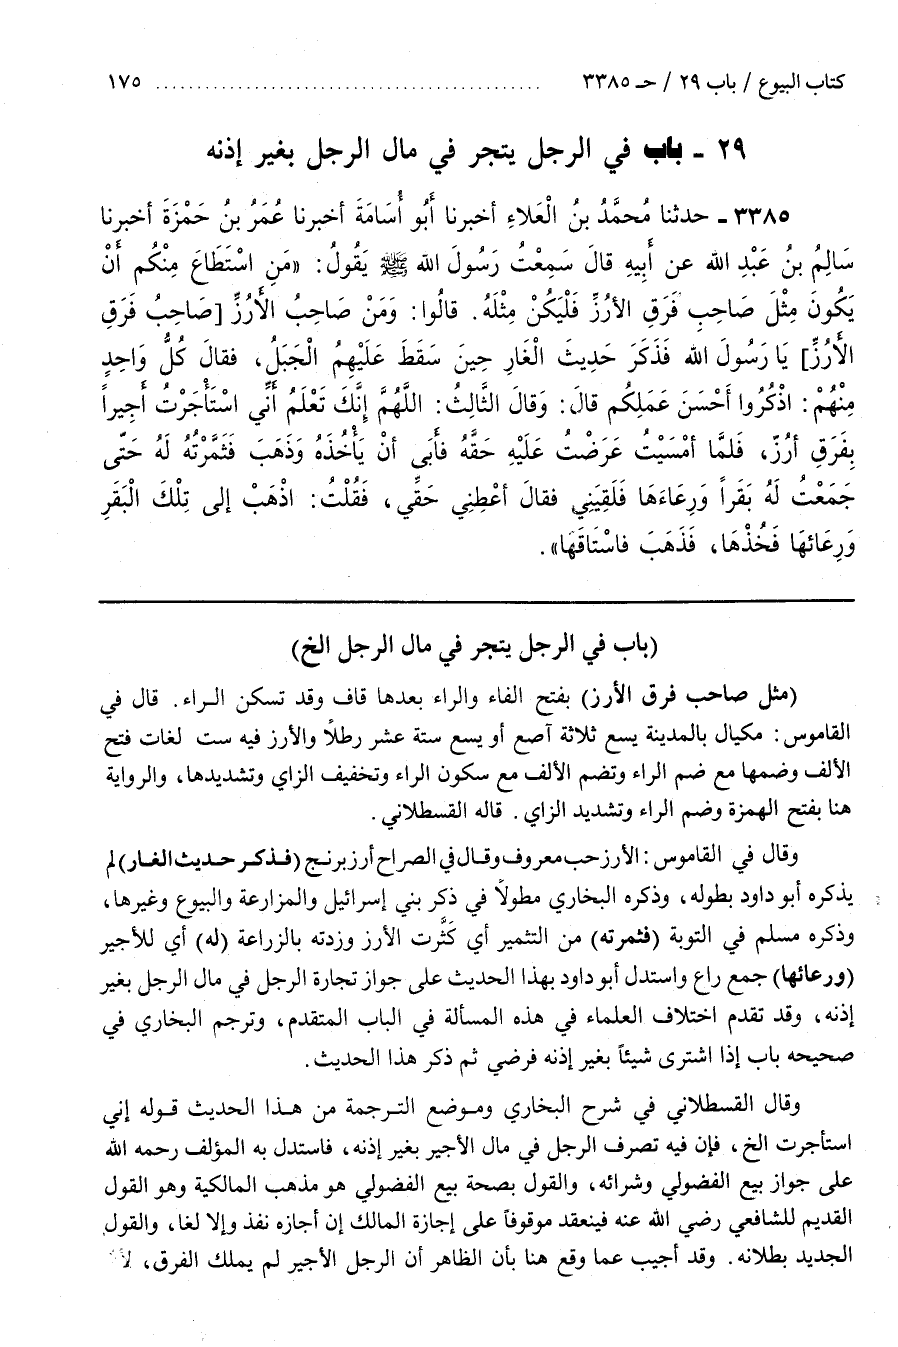 كتاب البيوع / باب ٢٩ / حـ ٣٣٨٥ ............................................... ١٧٥
٢٩ ـ باب في الرجل يتجر في مال الرجل بغير إذنه
٣٣٨٥ ـ حدثنا مُحمَّدُ بنُ الْعَلاءِ أخبرنا أَبُو أُسَامَةَ أخبرنا عُمَرُ بنُ حَمْزَةَ أخبرنا
سَالِمُ بنُ عَبْدِ الله عن أبِيهِ قالَ سَمِعْتُ رَسُولَ الله ﷺ يَقُولُ: «مَنِ اسْتَطَاعَ مِنْكُم أَنْ
يَكُونَ مِثْلَ صَاحِبِ فَرَقِ الأرُزِّ فَلْيَكُنْ مِثْلَهُ. قالُوا: وَمَنْ صَاحِبُ الأَرُزِّ [صَاحِبُ فَرَقِ
الأَرُزِّ] يَا رَسُولَ الله فَذَكَرَ حَدِيثَ الْغَارِ حِينَ سَقَطَ عَلَيْهِمُ الْجَبَلُ، فقالَ كُلُّ وَاحِدٍ
مِنْهُمْ: اذْكُرُوا أَحْسَنَ عَمَلِكُم قالَ: وَقالَ الثَّالِثُ: اللَّهُمَّ إنَّكَ تَعْلَمُ أنِّي اسْتَأْجَرْتُ أجِيراً
بِفَرَقِ أرُزّ، فَلمَّا أمْسَيْتُ عَرَضْتُ عَلَيْهِ حَقَّهُ فأَبَى أنْ يَأْخُذَهُ وَذَهَبَ فَثَمَّرْتُهُ لَهُ حَتَّى
جَمَعْتُ لَهُ بَقَراً وَرِعَاءَهَا فَلَقِيَنِي فقالَ أعْطِنِي حَقِّي، فَقُلْتُ: اذْهَبْ إلى تِلْكَ الْبَقَرِ
وَرِعَائهَا فَخُذْهَا، فَذَهَبَ فاسْتَاقَهَا».
(باب في الرجل يتجر في مال الرجل الخ)
(مثل صاحب فرق الأرز) بفتح الفاء والراء بعدها قاف وقد تسكن الـراء. قال في
القاموس: مكيال بالمدينة يسع ثلاثة آصع أو يسع ستة عشر رطلاً والأرز فيه ست لغات فتح
الألف وضمها مع ضم الراء وتضم الألف مع سكون الراء وتخفيف الزاي وتشديدها، والرواية
هنا بفتح الهمزة وضم الراء وتشديد الزاي. قاله القسطلاني.
وقال في القاموس: الأرز حب معروف وقال في الصراح أرز برنـج (فـذكـر حـديث الغـار) لم
يذكره أبو داود بطوله، وذكره البخاري مطولاً في ذكر بني إسرائيل والمزارعة والبيوع وغيرها،
وذكره مسلم في التوبة (فثمرته) من التثمير أي كَثَّرت الأرز وزدته بالزراعة (له) أي للأجير
(ورعائها) جمع راع واستدل أبو داود بهذا الحديث على جواز تجارة الرجل في مال الرجل بغير
إذنه، وقد تقدم اختلاف العلماء في هذه المسألة في الباب المتقدم، وترجم البخاري في
صحيحه باب إذا اشترى شيئاً بغير إذنه فرضي ثم ذكر هذا الحديث.
وقال القسطلاني في شرح البخاري ومـوضع التـرجمة من هـذا الحديث قـوله إني
استأجرت الخ، فإن فيه تصرف الرجل في مال الأجير بغير إذنه، فاستدل به المؤلف رحمه الله
على جواز بيع الفضولي وشرائه، والقول بصحة بيع الفضولي هو مذهب المالكية وهو القول
القديم للشافعي رضي الله عنه فينعقد موقوفاً على إجازة المالك إن أجازه نفذ وإلا لغا، والقول
الجديد بطلانه. وقد أجيب عما وقع هنا بأن الظاهر أن الرجل الأجير لم يملك الفرق،